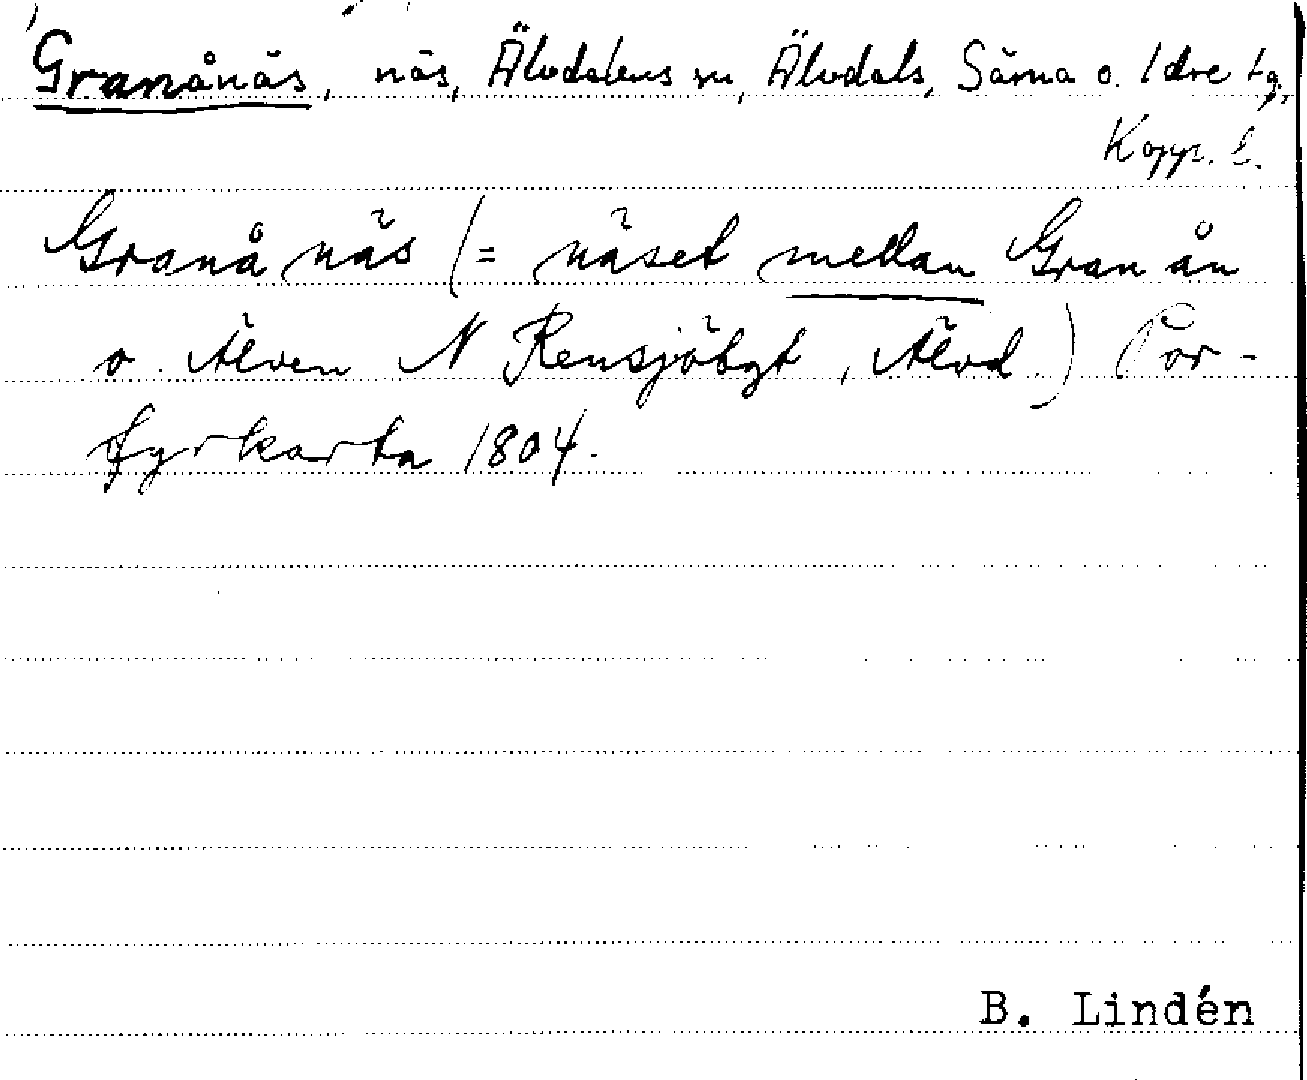 Granånäs, näs, Älvdalens sn, Älvdals, Särna o. Idre tg,
Kopp. l.
Granånäs (= näset mellan Gran ån
o. Älven N Rensjöbgt, Älvd.) Por-
fyrkarta 1804.
B. Lindén